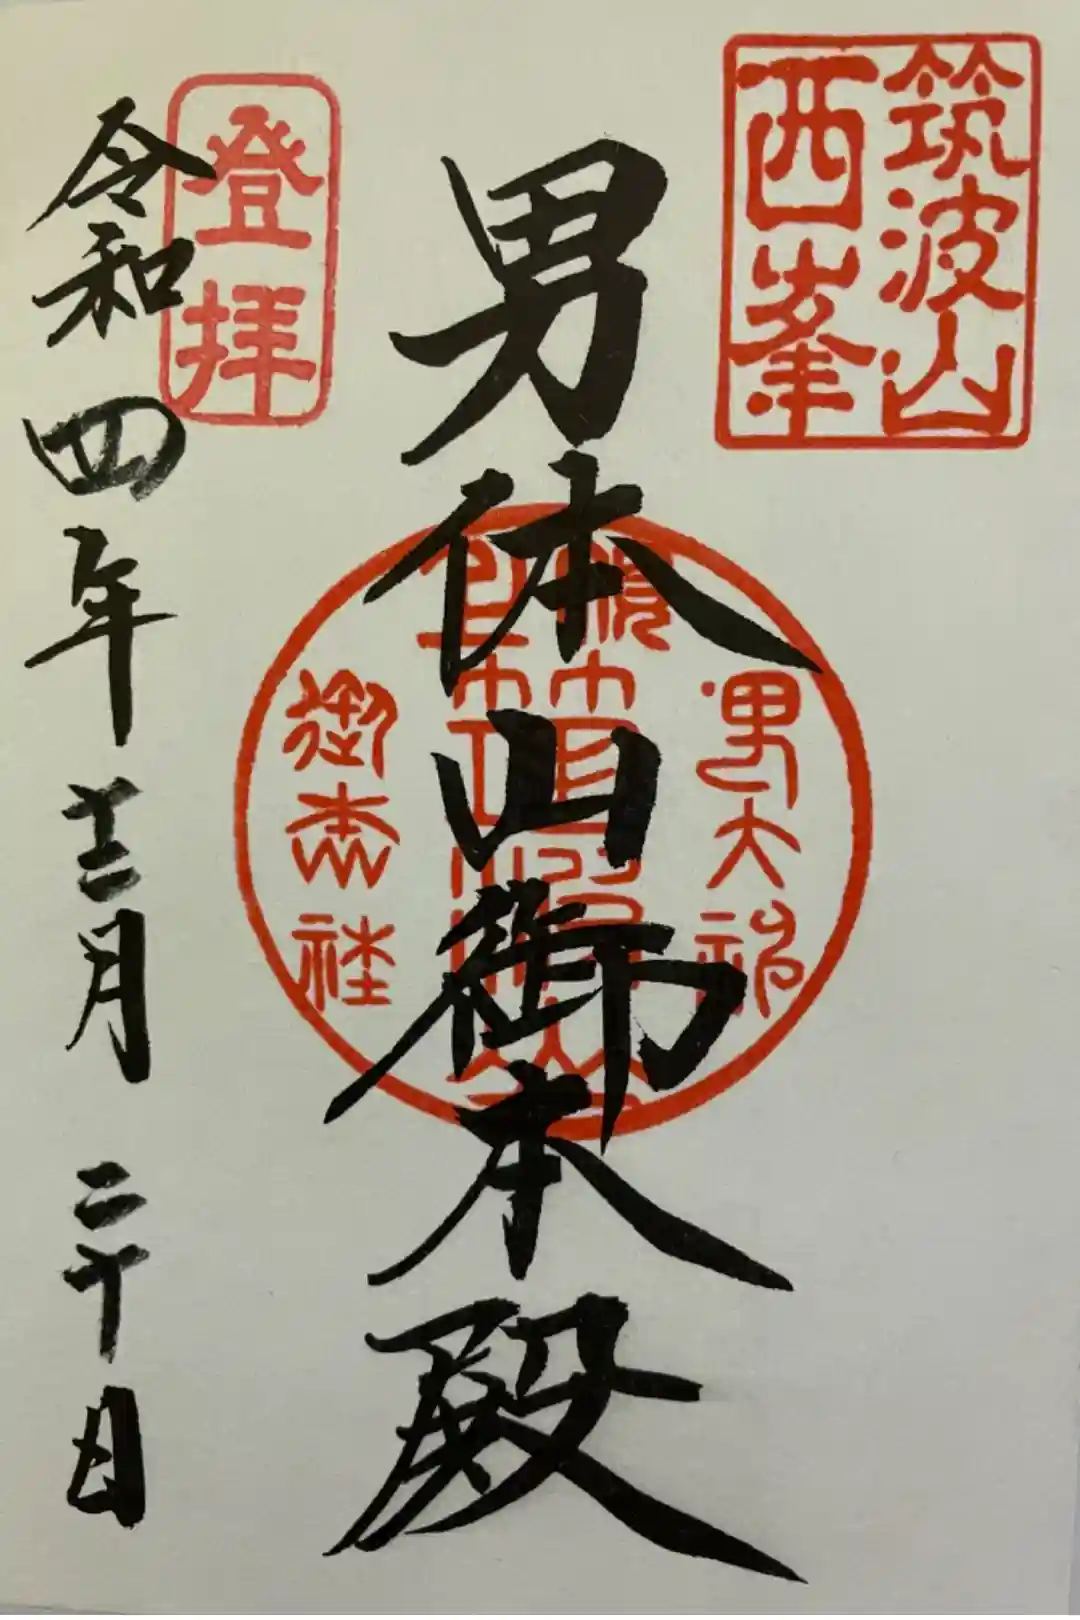 筑波山
西峯
男体山御本殿
登拝
令和四年十二月二十日
男大神
御本社